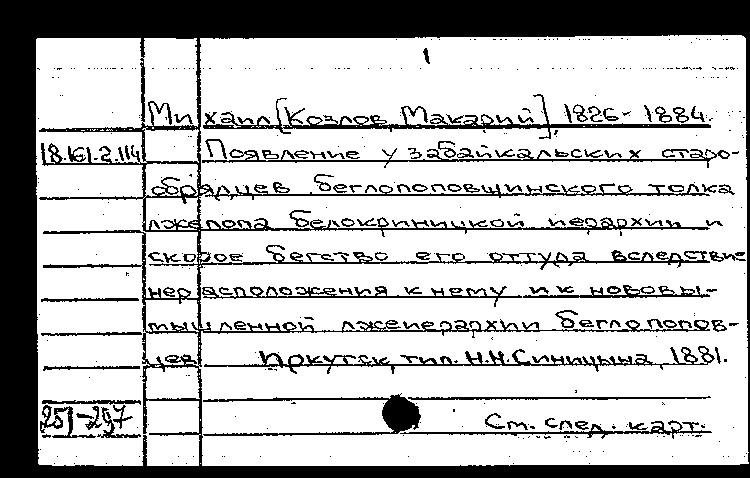 1
Михаил [Козлов, Макарий], 1826-1884.
18.161.2.114 Появление у забайкальских старо-
обрядцев беглопоповщинского толка
лжепопа белокриницкой иерархии и
скорое бегство его оттуда вследствие
нерасположения к нему и к нововы-
мышленной лжеиерархии беглопопов-
цев Иркутск, тип. Н.Н.Синицына, 1881.
251-297 См. след. карт.